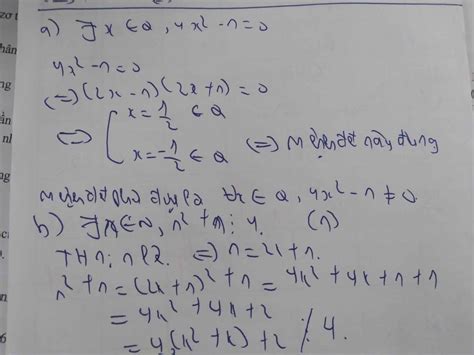 a) ∃x ∈ Q, 4x² - 1 = 0
4x² - 1 = 0
(=) (2x - 1)(2x + 1) = 0
<=> [ x = 1/2 ∈ Q
x = -1/2 ∈ Q (=) mệnh đề này đúng
mệnh đề phủ định là ∀x ∈ Q, 4x² - 1 ≠ 0
b) ∃n ∈ N, n² + 1 ⋮ 4. (1)
TH1: n lẻ. => n = 2k + 1.
n² + 1 = (2k + 1)² + 1 = 4k² + 4k + 1 + 1
= 4k² + 4k + 2
= 4(k² + k) + 2 ⋮̸ 4.